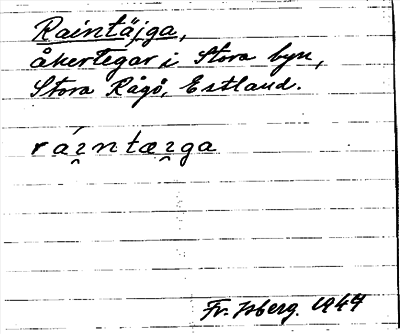 Raintäjga,
åkertegar i Stora byn,
Stora Rågö, Estland.
rái̯ntæi̯ga
Fr. Isberg. 1944